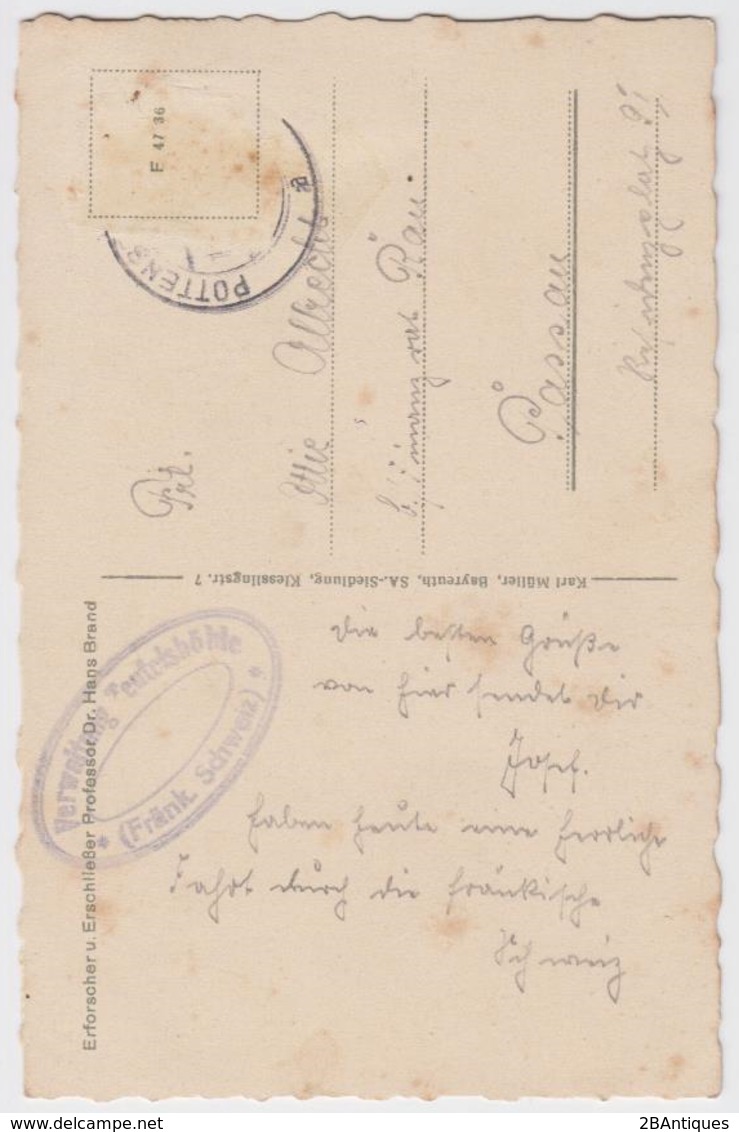 Erforscher u. Erschließer Professor Dr. Hans Brand
Verwaltung Teufelshöhle
* (Fränk. Schweiz) *
Die besten Grüße
von hier sendet Dir
Josef.
Haben heute eine herrliche
Fahrt durch die fränkische
Schweiz
Karl Müller, Bayreuth, SA.-Siedlung, Klesslingstr. 7
F 47 36
POTTENS
a
Frl.
Albrecht
b. Finanzrat Rau.
Passau
2BAntiques